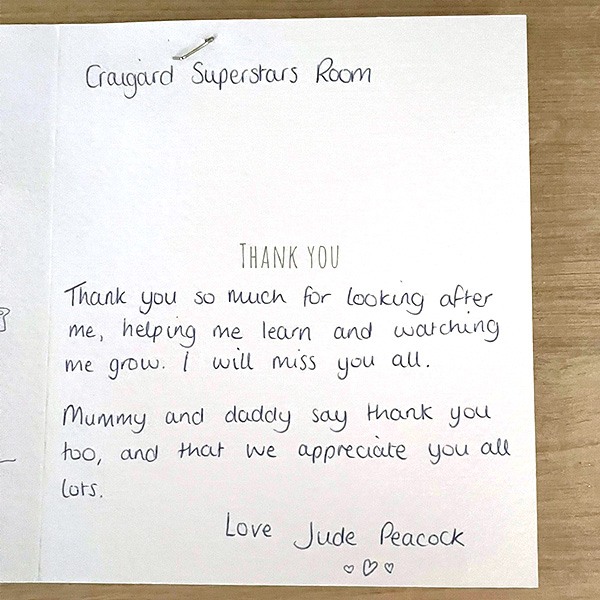 Craigard Superstars Room
THANK YOU
Thank you so much for looking after
me, helping me learn and watching
me grow. I will miss you all.
Mummy and daddy say thank you
too, and that we appreciate you all
lots.
Love Jude Peacock